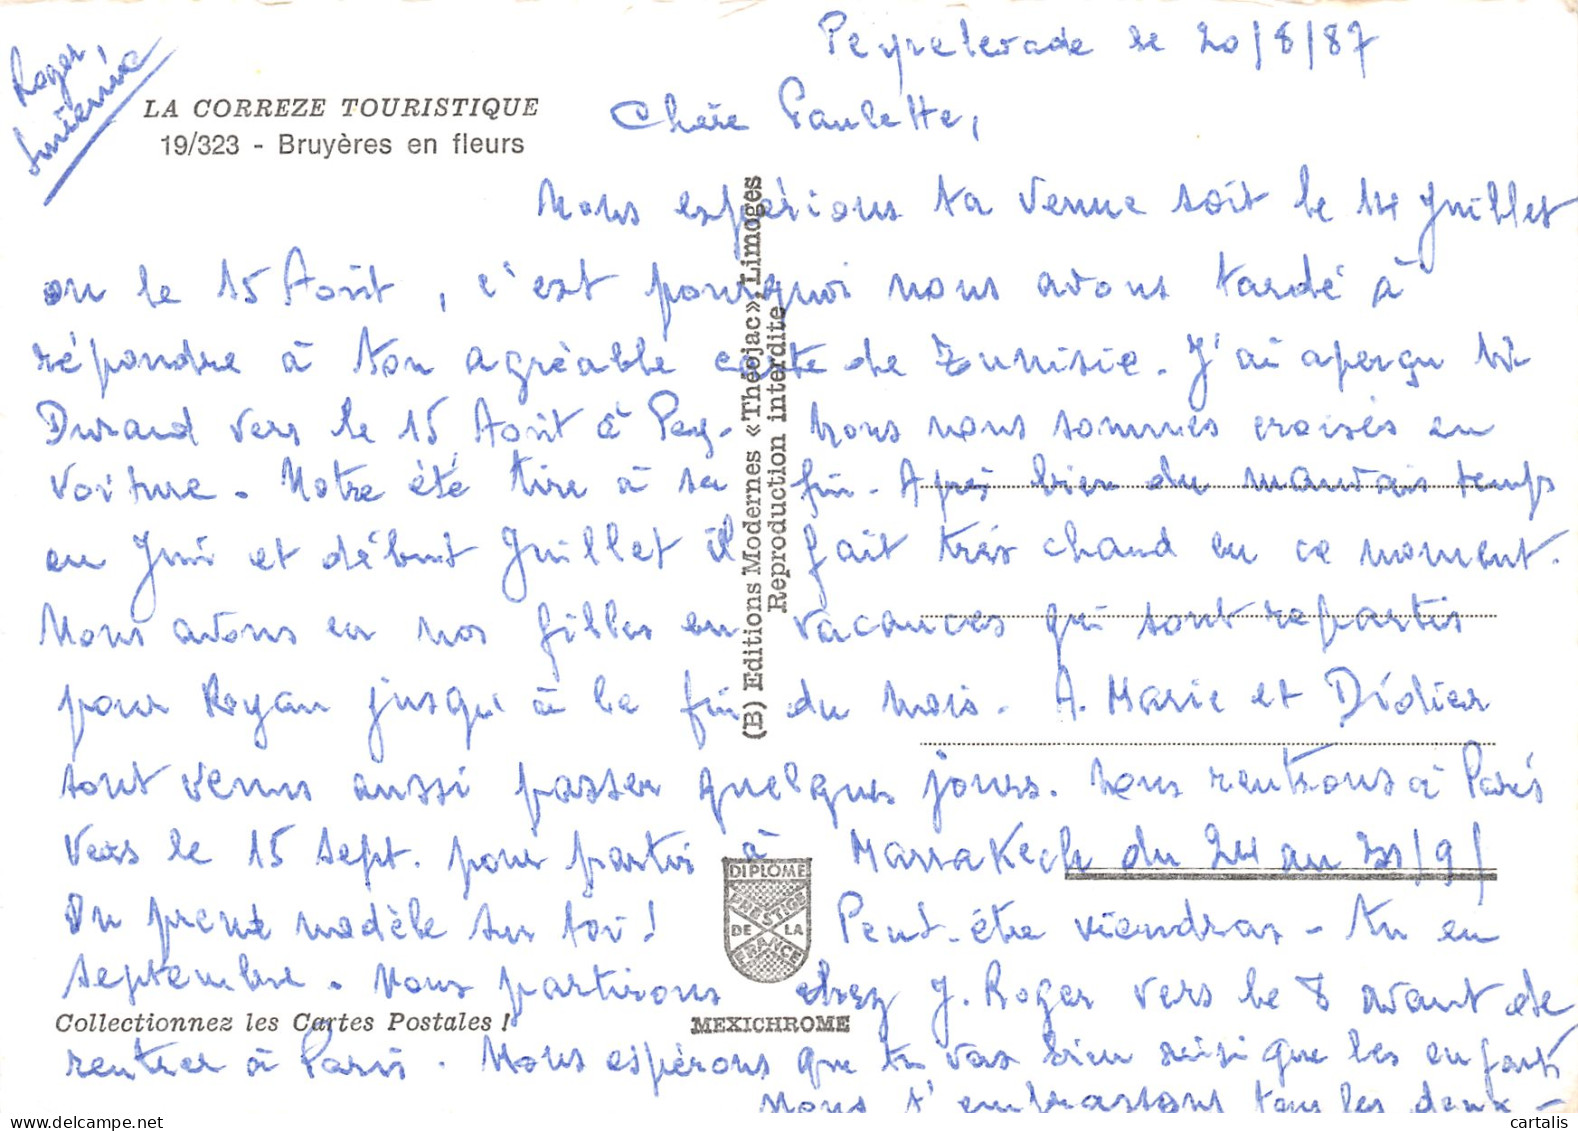 Peyrelevade le 20/8/87
Roger
LA CORREZE TOURISTIQUE
19/323 - Bruyères en fleurs
Chère Paulette,
Nous espérions ta venue soit le 14 Juillet
ou le 15 Août, c'est pourquoi nous avons tardé à
répondre à ton agréable carte de Tunisie. J'ai aperçu
Durand vers le 15 Août à Pey- Nous nous sommes croisés en
voiture. Notre été tire à sa fin. Après bien du mauvais temps
en Juin et début Juillet il fait très chaud en ce moment.
Nous avons eu nos filles en vacances qui sont repartis
pour Royan jusqu'à la fin du mois. A. Marie et Didier
sont venus aussi passer quelques jours. Nous rentrons à Paris
vers le 15 Sept. pour partir à Marrakech du 24 au /9/
On prend modèle sur toi! Peut-être viendras-tu en
septembre. Nous partirons chez J. Roger vers le 8 avant de
rentrer à Paris. Nous espérons que tu vas bien ainsi que les enfants
Nous t'embrassons tous les deux-
(B) Editions Modernes «Théojac», Limoges
Reproduction interdite
DIPLOME
PRESTIGE
DE LA
FRANCE
Collectionnez les Cartes Postales !
MEXICHROME
cartalis